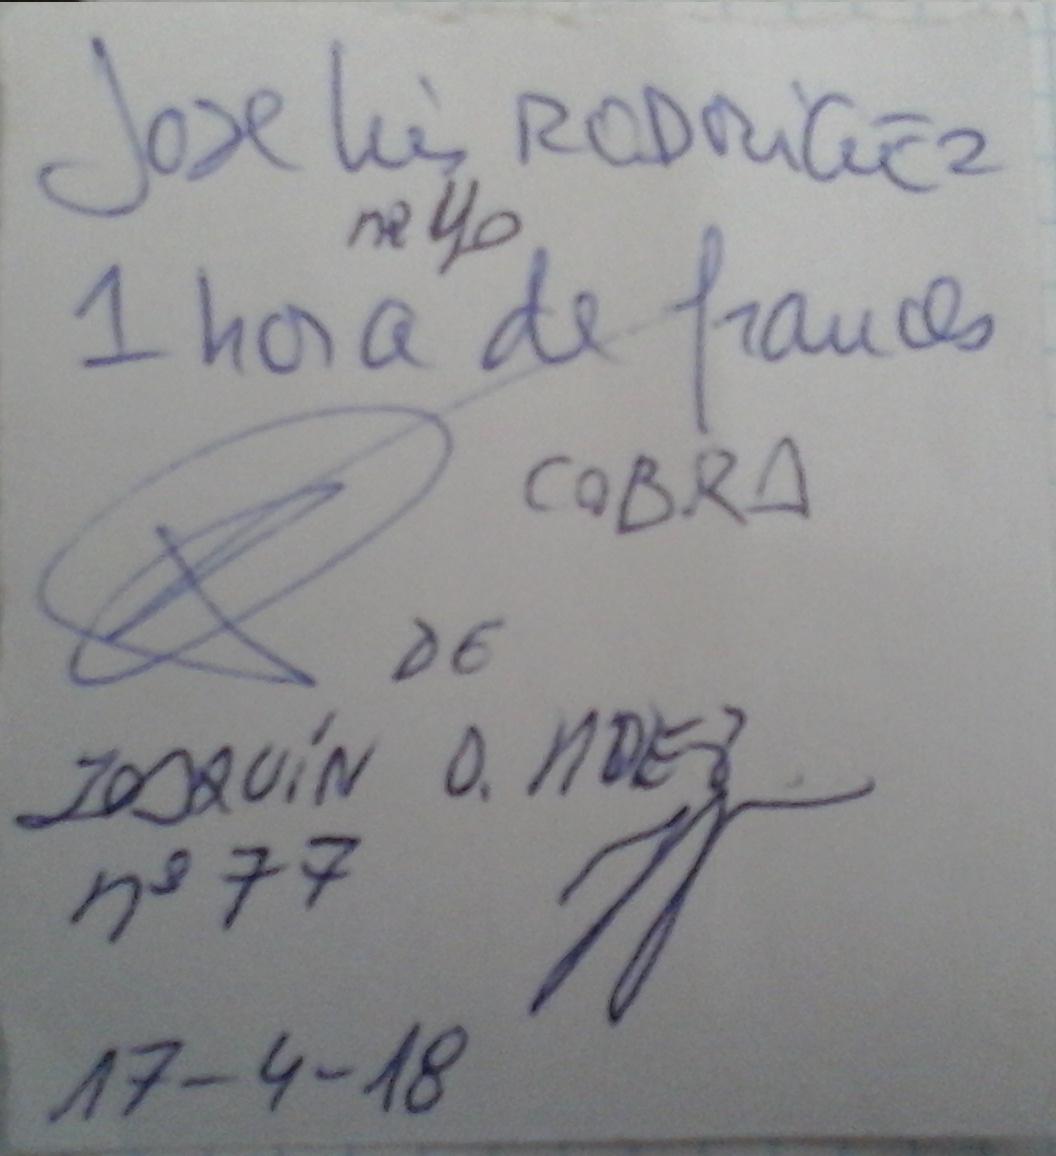 Jose Luis RODRIGUEZ
nº 40
1 hora de frances
COBRA
DE
JOAQUÍN O. HDEZ
nº 77
17-4-18